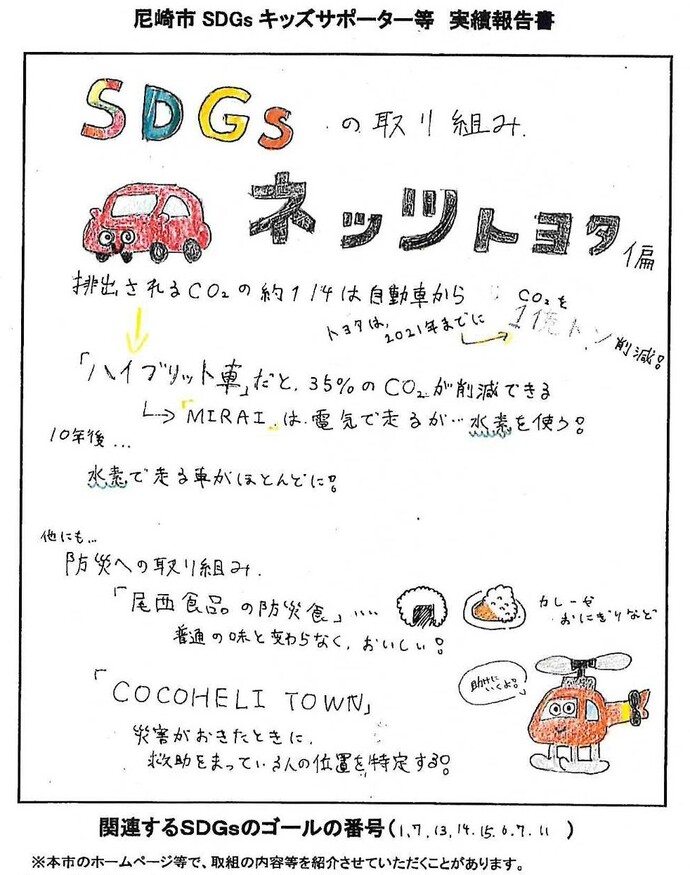 尼崎市 SDGs キッズサポーター等　実績報告書
SDGs の取り組み.
ネッツトヨタ 偏
排出されるCO₂の約1/4は自動車から
トヨタは, 2021年までに CO₂を 1億トン削減!
「ハイブリット車」だと、35%のCO₂が削減できる
「MIRAI」は電気で走るが…水素を使う!
10年後...
水素で走る車がほとんどに!
他にも...
防災への取り組み.
「尾西食品の防災食」....
カレーや
おにぎりなど
普通の味と変わらなく、おいしい!
「COCOHELI TOWN」
助けにいくよ!
災害がおきたときに、
救助をまっている人の位置を特定する!
関連するSDGsのゴールの番号(1,7,13,14,15,6,7,11 )
※本市のホームページ等で、取組の内容等を紹介させていただくことがあります。